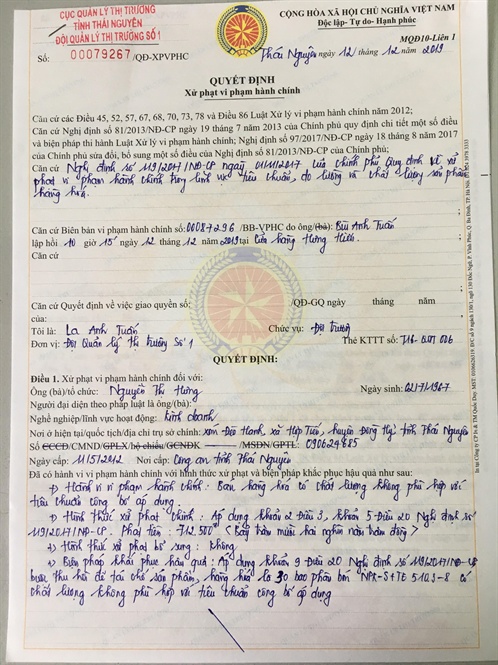 CỤC QUẢN LÝ THỊ TRƯỜNG
TỈNH THÁI NGUYÊN
ĐỘI QUẢN LÝ THỊ TRƯỜNG SỐ 1
CỘNG HÒA XÃ HỘI CHỦ NGHĨA VIỆT NAM
Độc lập- Tự do- Hạnh phúc
MQĐ10-Liên 1
Số: 00079267/QĐ-XPVPHC
Thái Nguyên ngày 12 / tháng 12 / năm 2019
QUYẾT ĐỊNH
Xử phạt vi phạm hành chính
Căn cứ các Điều 45, 52, 57, 67, 68, 70, 73, 78 và Điều 86 Luật Xử lý vi phạm hành chính năm 2012;
Căn cứ Nghị định số 81/2013/NĐ-CP ngày 19 tháng 7 năm 2013 của Chính phủ quy định chi tiết một số điều
và biện pháp thi hành Luật Xử lý vi phạm hành chính; Nghị định số 97/2017/NĐ-CP ngày 18 tháng 8 năm 2017
của Chính phủ sửa đổi, bổ sung một số điều của Nghị định số 81/2013/NĐ-CP của Chính phủ;
Căn cứ Nghị định số 119/2017/NĐ-CP ngày 01/11/2017 của chính phủ quy định về xử
phạt vi phạm hành chính trong lĩnh vực tiêu chuẩn, đo lường và chất lượng sản phẩm
hàng hóa.
Căn cứ Biên bản vi phạm hành chính số: 00087296 /BB-VPHC do ông/(bà): Bùi Anh Tuấn
lập hồi 10 giờ 15 ngày 12 tháng 12 năm 2019 tại Cửa hàng Hưng Hiền
Căn cứ
Căn cứ Quyết định về việc giao quyền số: /QĐ-GQ ngày tháng năm
của:
Tôi là: La Anh Tuấn Chức vụ: Đội trưởng
Đơn vị: Đội Quản lý thị trường Số 1 Thẻ KTTT số:
QUYẾT ĐỊNH:
Điều 1. Xử phạt vi phạm hành chính đối với:
Ông (bà)/tổ chức: Nguyễn Thị Hưng Ngày sinh: 02/7/1967
Người đại diện theo pháp luật là ông/(bà):
Nghề nghiệp/lĩnh vực hoạt động: kinh doanh
Nơi ở hiện tại/quốc tịch/địa chỉ trụ sở chính: xóm Diệc Hanh xã Hợp Tiến, huyện Đồng Hỷ, tỉnh Thái Nguyên
Số CCCD/CMND/GPLX/hộ chiếu/GCNĐK /MSDN/GPTL: 090624685
Ngày cấp: 11/5/2012 Nơi cấp: Công an tỉnh Thái Nguyên
Đã có hành vi vi phạm hành chính với hình thức xử phạt và biện pháp khắc phục hậu quả như sau:
1) Hành vi vi phạm hành chính: Bán hàng hóa có chất lượng không phù hợp với
tiêu chuẩn công bố áp dụng.
2) Hình thức xử phạt chính: Áp dụng khoản 2 Điều 3, khoản 5 Điều 20 Nghị định số
119/2017/NĐ-CP. Phạt tiền: 712.500đ (Bảy trăm mười hai nghìn năm trăm đồng)
3) Hình thức xử phạt bổ sung: Không
4) Biện pháp khắc phục hậu quả: Áp dụng khoản 9 Điều 20 Nghị định số 119/2017/NĐ-CP
buộc thu hồi để tái chế sản phẩm, hàng hóa là 30 bao phân bón NPK-S+TE 5.10.3-8 có
chất lượng không phù hợp với tiêu chuẩn công bố áp dụng